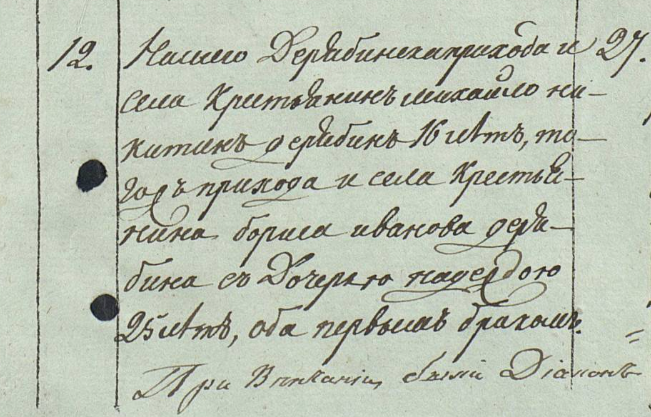 12. Нашего Дерябинска прихода и 27.
села Крестьянинъ михайло ни-
китинъ дерябинъ 16 летъ, то-
гожъ прихода и села Крестья-
нина бориса иванова деря-
бина съ Дочерью надеждою
25 летъ, оба первымъ бракомъ.
При Венчании были Діаконъ